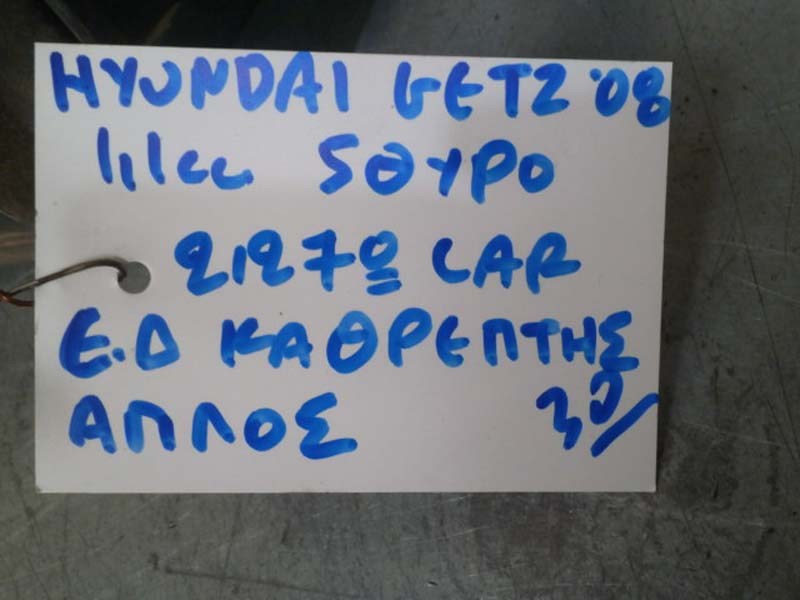 HYUNDAI GETZ '08
1,1cc 5ΘΥΡΟ
2127º CAR
Ε.Δ ΚΑΘΡΕΠΤΗΣ
ΑΠΛΟΣ 30/